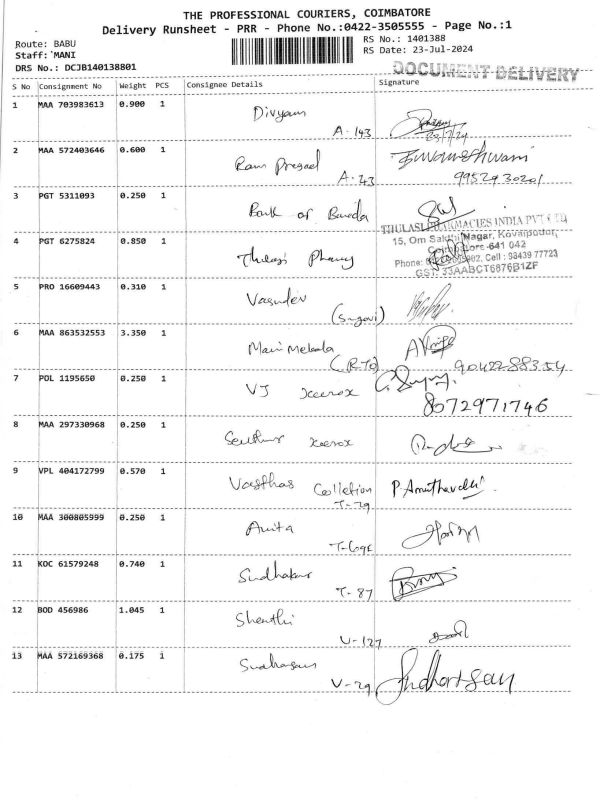 THE PROFESSIONAL COURIERS, COIMBATORE
Delivery Runsheet - PRR - Phone No.:0422-3505555 - Page No.:1
Route: BABU
RS No.: 1401388
Staff: MANI
RS Date: 23-Jul-2024
DRS No.: DCJB140138801
DOCUMENT DELIVERY
S No Consignment No Weight PCS Consignee Details Signature
1 MAA 703983613 0.900 1 Divyam
A-143 23/7/24
2 MAA 572403646 0.600 1 Ram Prasad
A-43 9952930201
3 PGT 5311093 0.250 1 Bank of Baroda
THULASI PHARMACIES INDIA PVT LTD
4 PGT 6275824 0.850 1 Thulasi Pharmy
15, Om Sakthi Nagar, Kovaipudur,
Coimbatore-641 042
Cell : 98439 77723
GST: 33AABCT6676B1ZF
5 PRO 16609443 0.310 1 Vasudev
(Sugavi)
6 MAA 863532553 3.350 1 Mani Mekala
(RTO) 9042288354
7 POL 1195650 0.250 1 VJ Xerox
8072971746
8 MAA 297330968 0.250 1 Senthur Xerox
9 VPL 404172799 0.570 1 Vasthas Colletion P. Amuthavalli
T-29
10 MAA 300805999 0.250 1 Anita
11 KOC 61579248 0.740 1 Sudhakar
T-87
12 BOD 456986 1.045 1 Shenthi
U-127
13 MAA 572169368 0.175 1 Sudhasan
V-29 Sudharsan